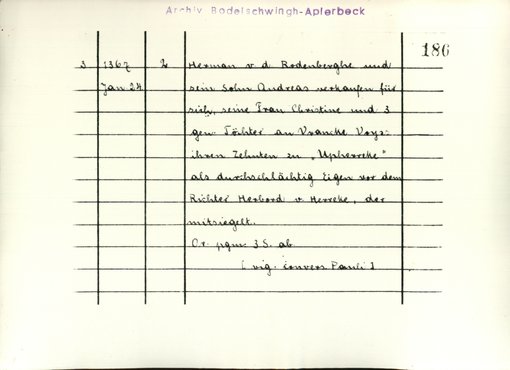 Archiv Bodelschwingh-Apferbeck
186
3 1367 2 Herman v d Rodenberghe und
Jan 24 sein Sohn Andreas verkaufen für
sich, seine Frau Christine und 3
gen Töchter an Vrancke Voys:
ihren Zehnten zu „Upherreke"
als durchschlächtig Eigen vor dem
Richter Herbord v Herreke, der
mitsiegelt.
Or. pgm. 3 S. ab
[ vig. convers. Pauli ]